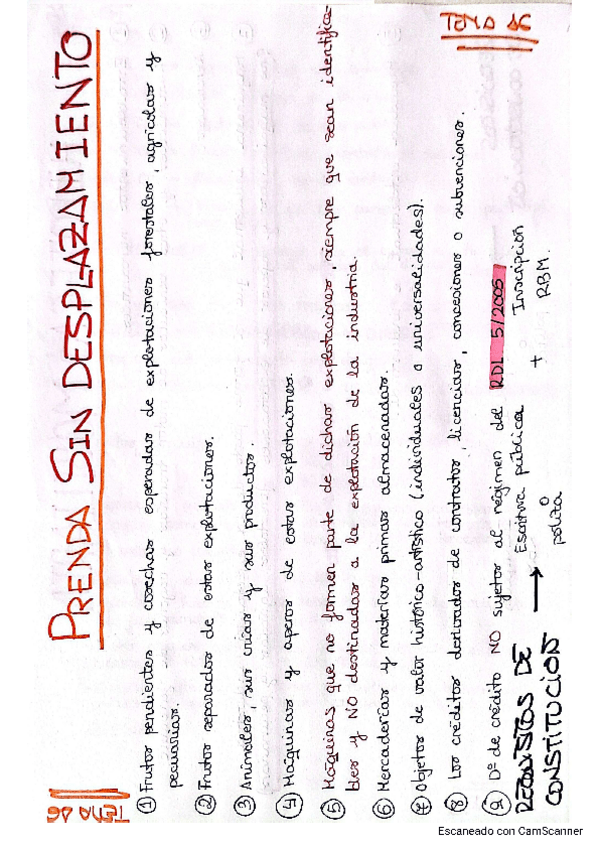 TEMA 26
PRENDA SIN DESPLAZAMIENTO
TEMA 26
① Frutos pendientes y cosechas esperadas de explotaciones forestales, agrícolas y
pecuarias.
② Frutos separados de estas explotaciones.
③ Animales, sus crías y sus productos.
④ Máquinas y aperos de estas explotaciones.
⑤ Máquinas que no formen parte de dichas explotaciones, siempre que sean identifica-
bles y NO destinadas a la explotación de la industria.
⑥ Mercaderías y materias primas almacenadas.
⑦ Objetos de valor histórico-artístico (individuales o universalidades).
⑧ Los créditos derivados de contratos, licencias, concesiones o subvenciones.
⑨ Dº de crédito NO sujetos al régimen del RDL 5/2005
REQUISITOS DE CONSTITUCIÓN → Escritura pública o póliza + Inscripción RBM.
Escaneado con CamScanner